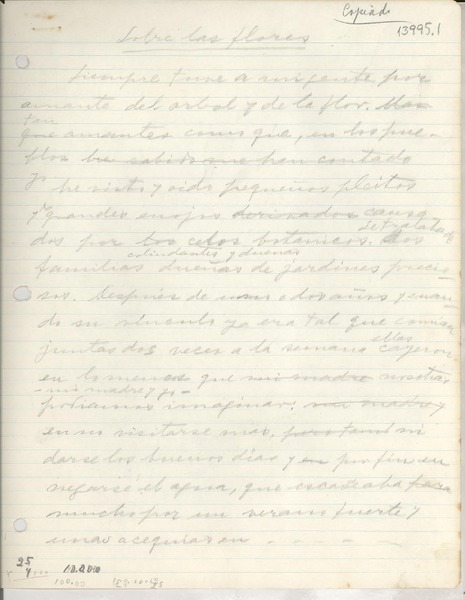 Copiado
13995.1
Sobre las flores
Siempre tuve a mi gente por
amante del arbol y de la flor. Mas
tan
que amantes como que, en los pue-
blos he sabido que han contado
yo he visto y oido pequeños pleitos
y grandes enojos derivados causa
dos por los celos botanicos. dos
colindantes y dueñas
familias dueñas de jardines precio
sos. Después de unos años y cuan
do su vínculo ya era tal que comian
juntas dos veces a la semana ellas cayeron
en lo menos que mi madre nosotras
- mi madre y yo -
podiamos imaginar: mi madre y
en no visitarse mas, pero tamb ni
darse los buenos días y en por fin en
negarse el agua, que escaseaba para
mucho por un verano fuerte y
unas acequias en - - - - -
25
4
10.000